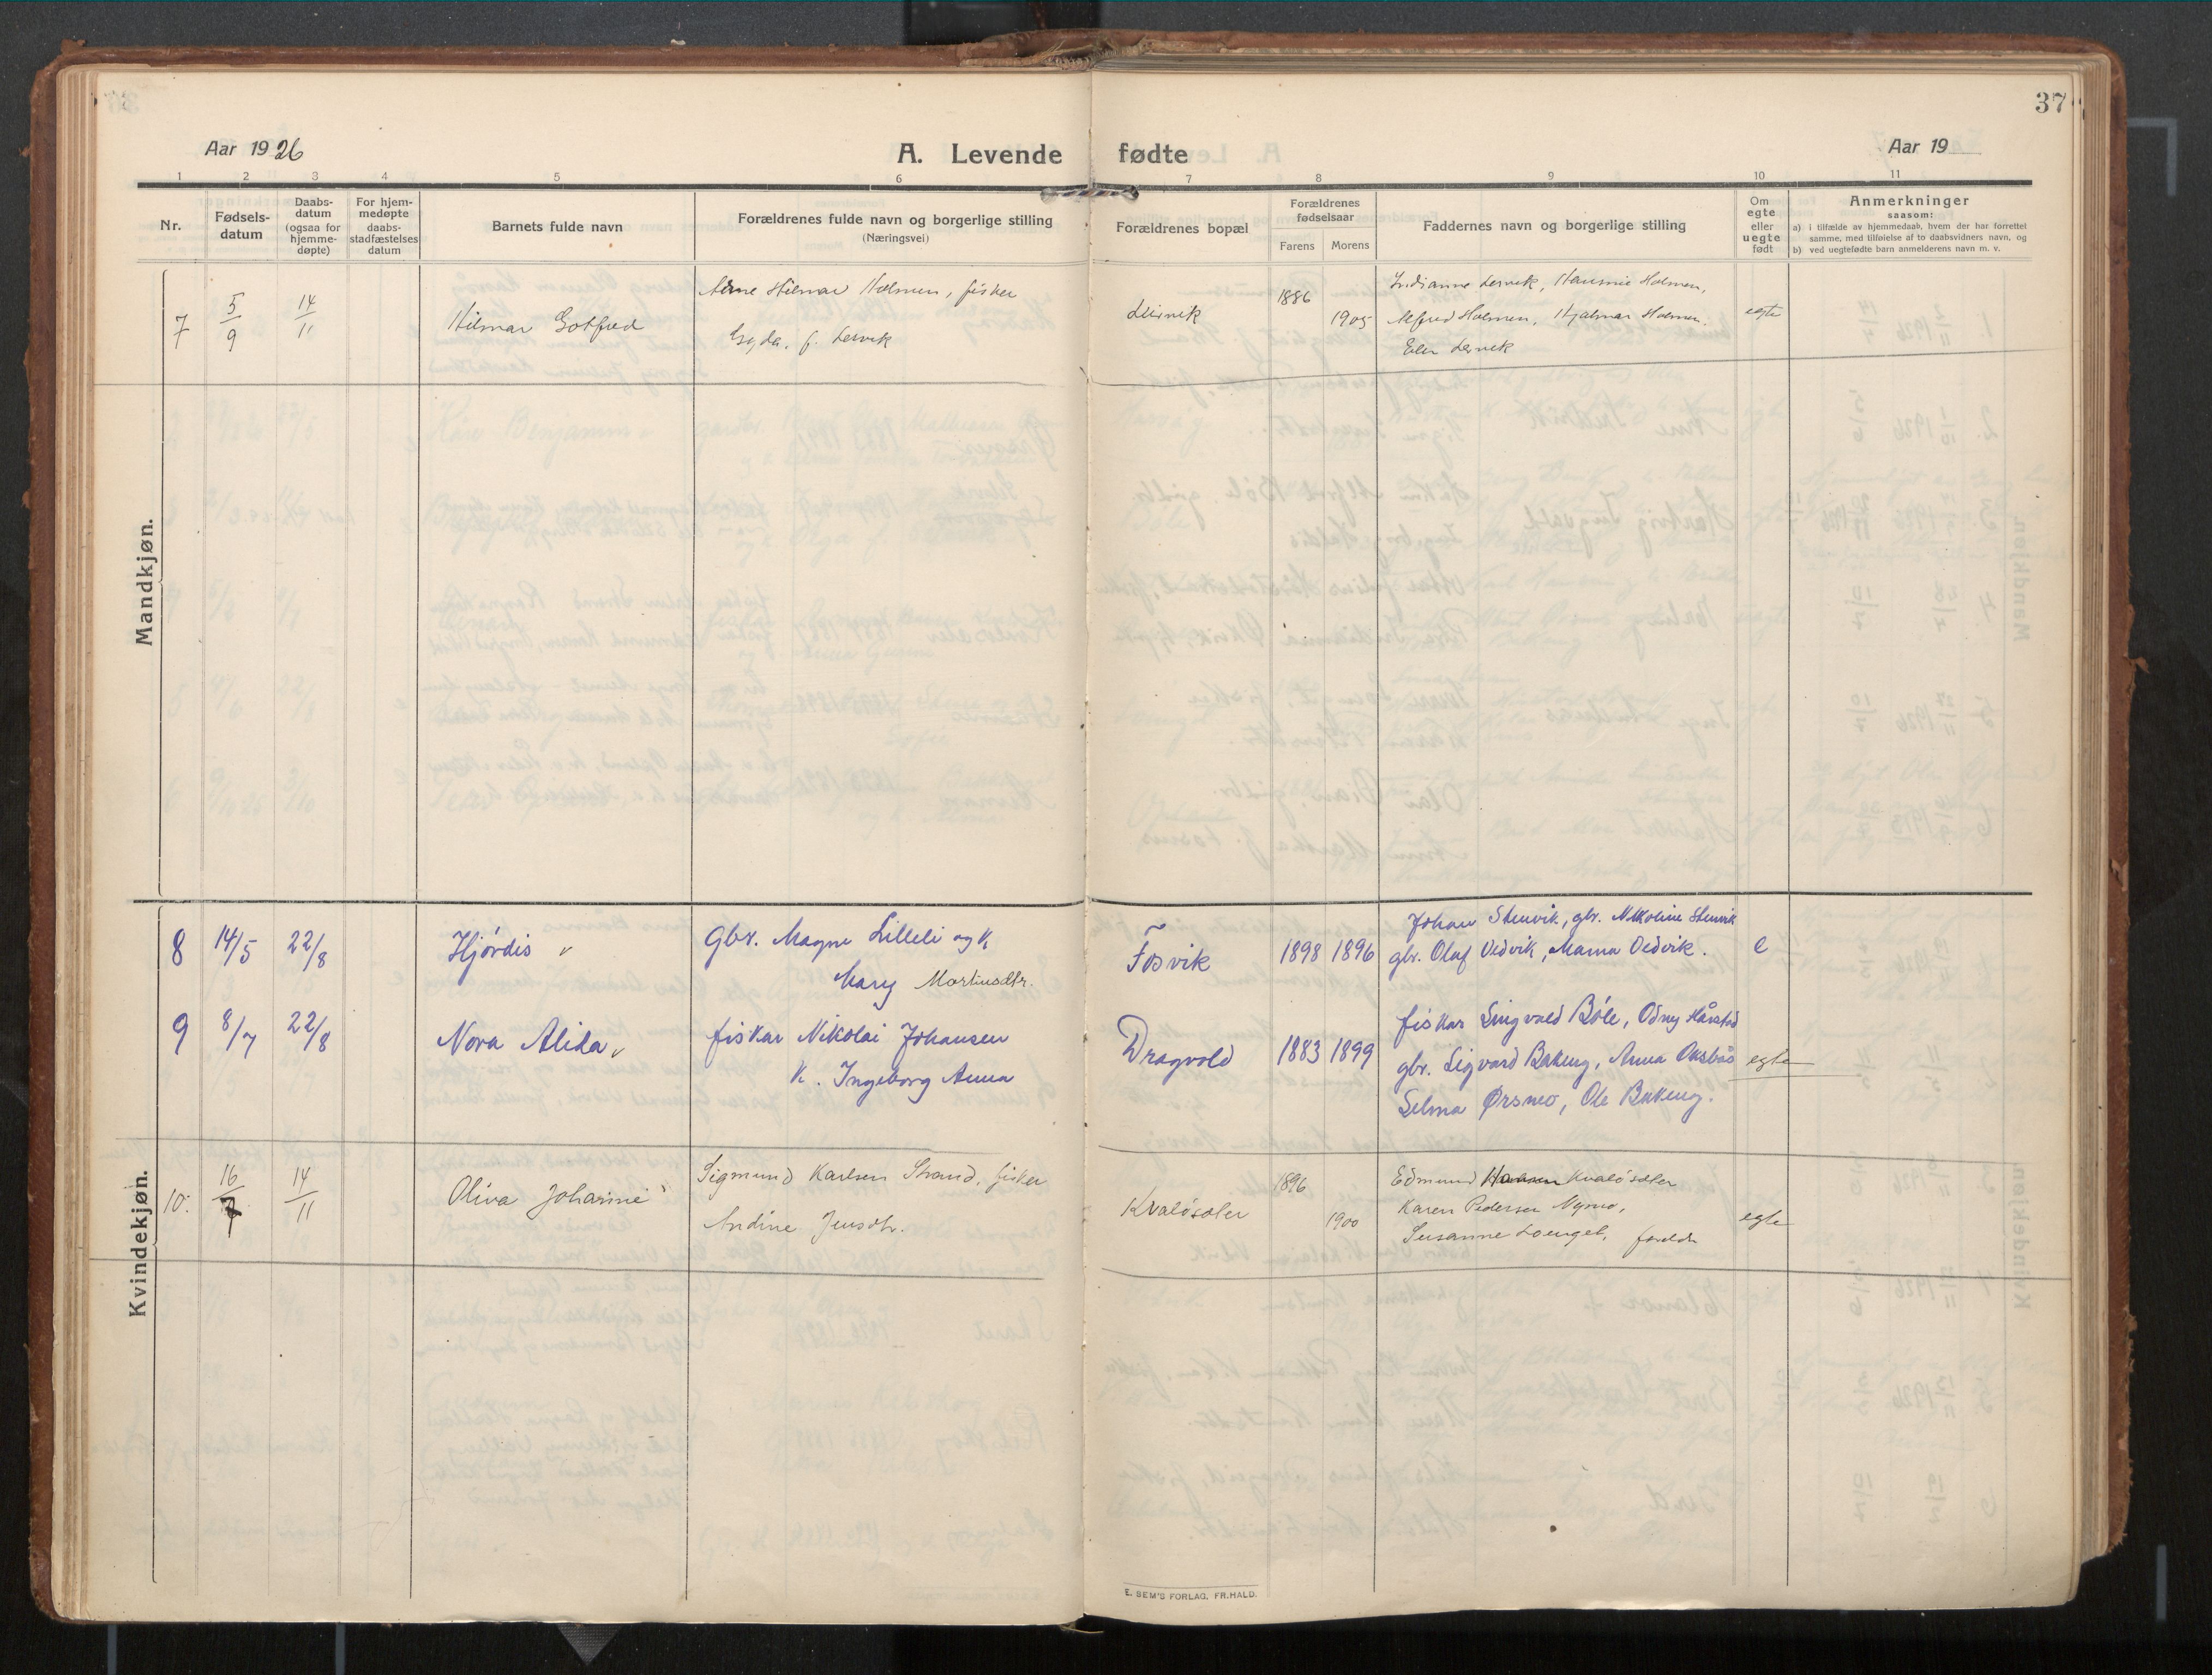 37
Aar 1926
A. Levende fødte
Aar 19
1 2 3 4 5 6 7 8 9 10 11
Nr.
Fødsels-
datum
Daabs-
datum
(ogsaa for
hjemme-
døpte)
For hjem-
medøpte
daabs-
stadfæstelses
datum
Barnets fulde navn
Forældrenes fulde navn og borgerlige stilling
(Næringsvei)
Forældrenes bopæl
Forældrenes
fødselsaar
Farens Morens
Faddernes navn og borgerlige stilling
Om
egte
eller
uegte
født
Anmerkninger
saasom:
a) i tilfælde av hjemmedaab, hvem der har forrettet
samme, med tilføielse af to daabsvidners navn, og
b) ved uegtefødte barn anmelderens navn m. v.
Mandkjøn.
7 5/9 14/11 Hilmar Gotfred
Arne Hilmar Holmen, fisker
Gyda, f. Lervik
1886
1905
Lervik, Holmen,
Alfred Holmen, Hjalmar Holmen.
Lervik
egte
Kvindekjøn.
8 14/5 22/8 Hjórdis
Gbr. Magne Lilleli og k
Mary Martinsdtr.
Fosvik 1898 1896
Johan Stenvik, gbr. Nikoline Stenvik
gbr. Olaf Vedvik, Mama Vedvik.
e
9 8/7 22/8 Nora Alida
fiskar Nikolai Johansen
K. Ingeborg Anna
Dragvold 1883 1899
fiskar Ingvald Bóle, Odny Hårstad
gbr. Sigvard Bakeng, Anna Oksbås
Selma Ørsneo, Ole Bakeng.
egte
10. 16/7 14/11 Oliva Johanne
Sigmund Karlsen Strand, fisker
Andine Jensdtr.
Kvalósæter 1896
1900
Edmund Hansen Kvalósæter
Karen Pedersen Nymo,
Susanne Loenget, foreldr
egte
E. SEM'S FORLAG, FR.HALD.